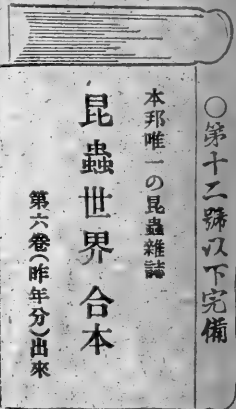 ○第十二號以下完備
本邦唯一の昆蟲雜誌
昆蟲世界 合本
第六卷(昨年分)出來